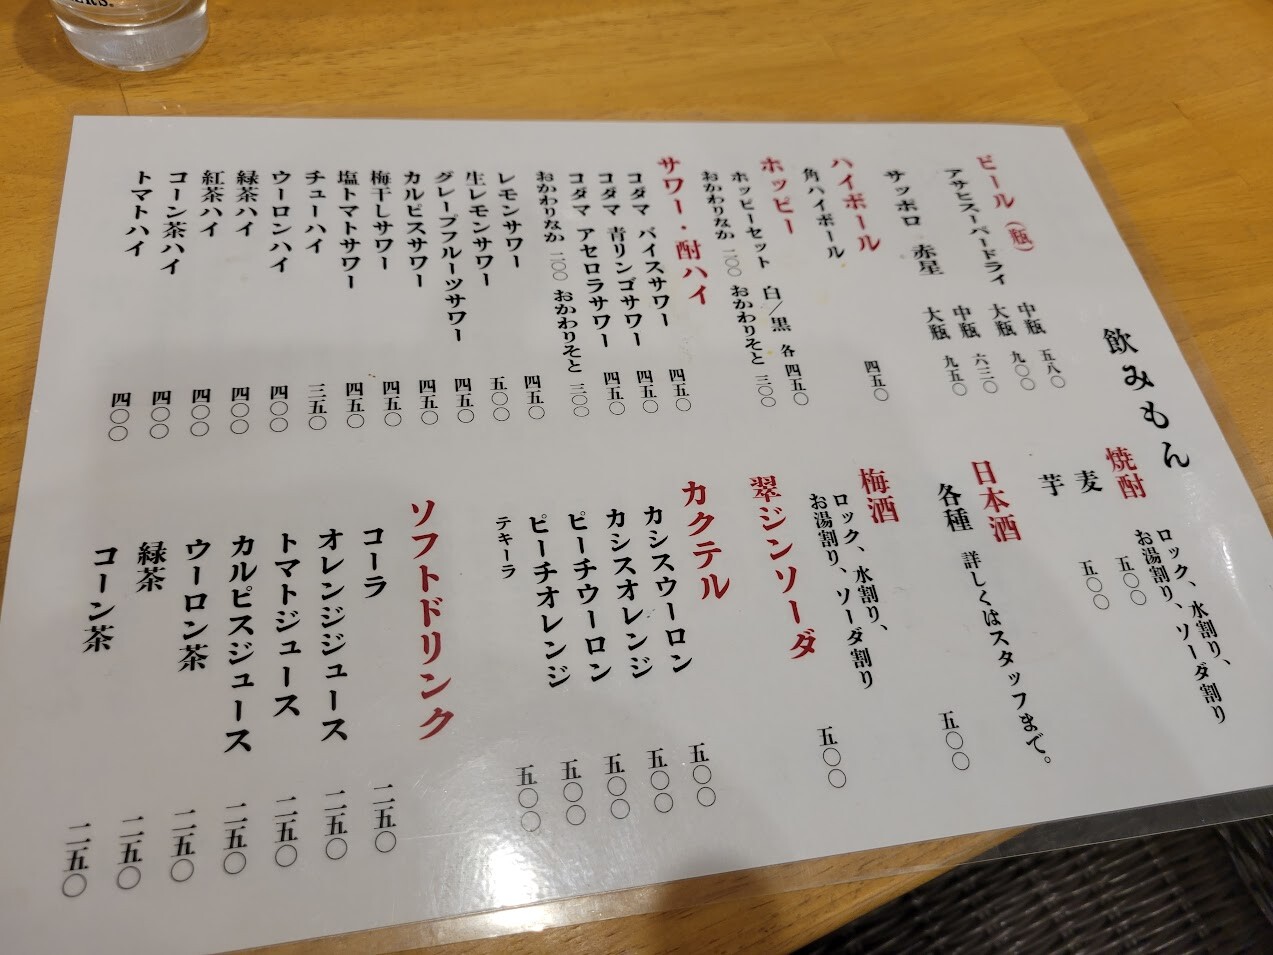 飲みもん
ビール（瓶）
アサヒスーパードライ 中瓶 五八〇
大瓶 九〇〇
サッポロ 赤星 中瓶 六三〇
大瓶 九五〇
ハイボール
角ハイボール 四五〇
ホッピー
ホッピーセット 白／黒 各 四五〇
おかわりなか 二〇〇 おかわりそと 三〇〇
サワー・酎ハイ
コダマ バイスサワー 四五〇
コダマ 青リンゴサワー 四五〇
コダマ アセロラサワー 四五〇
おかわりなか 二〇〇 おかわりそと 三〇〇
レモンサワー 四五〇
生レモンサワー 五〇〇
グレープフルーツサワー 四五〇
カルピスサワー 四五〇
梅干しサワー 四五〇
塩トマトサワー 四五〇
チューハイ 三五〇
ウーロンハイ 四〇〇
緑茶ハイ 四〇〇
紅茶ハイ 四〇〇
コーン茶ハイ 四〇〇
トマトハイ 四〇〇
焼酎 ロック、水割り、
お湯割り、ソーダ割り
麦 五〇〇
芋 五〇〇
日本酒
各種 詳しくはスタッフまで。
梅酒 五〇〇
ロック、水割り、
お湯割り、ソーダ割り
翠ジンソーダ 五〇〇
カクテル
カシスウーロン 五〇〇
カシスオレンジ 五〇〇
ピーチウーロン 五〇〇
ピーチオレンジ 五〇〇
テキーラ 五〇〇
ソフトドリンク
コーラ 二五〇
オレンジジュース 二五〇
トマトジュース 二五〇
カルピスジュース 二五〇
ウーロン茶 二五〇
緑茶 二五〇
コーン茶 二五〇